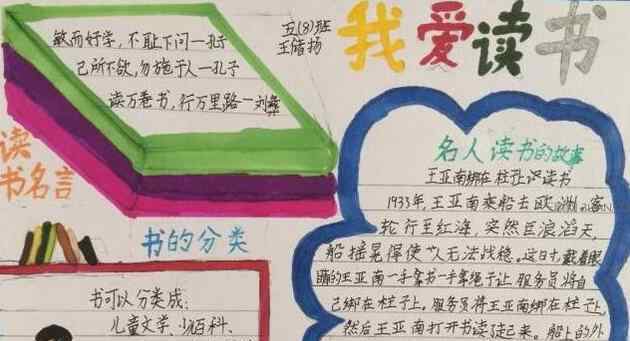 我爱读书
五(8)班
王储扬
敏而好学，不耻下问一孔子
己所不欲，勿施于人一孔子
读万卷书，行万里路一刘彝
读
书名言
书的分类
书可以分类成：
儿童文学、少百科、
名人读书的故事
王亚南绑在柱让识读书
1933年，王亚南乘船去欧洲，客
轮行至红海，突然巨浪滔天，
船摇晃得使人无法战稳，这日寸，戴着眼
镜的王亚南一手拿书一手拿绳子让服务员将自
己绑在柱子上，服务员将王亚南绑在柱子上，
然后王亚南打开书读了起来。船上的外